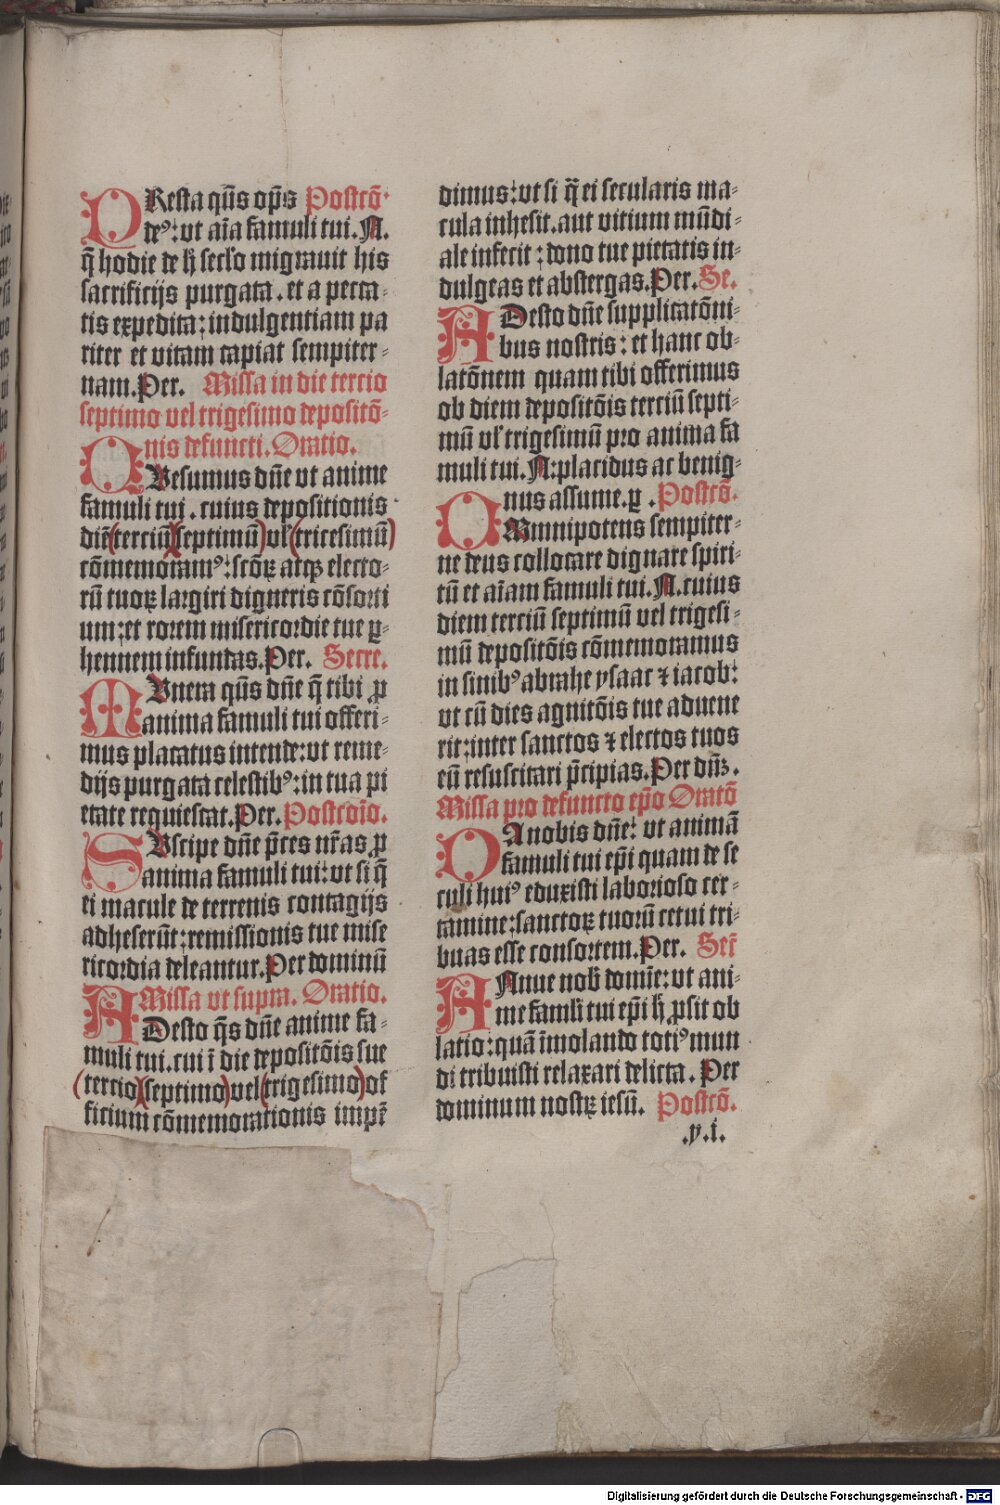 PResta qu̅s op̅s Postco̅.
deꝰ: vt ai̅a famuli tui. N.
q̅ hodie de h̅ sec̅lo migrauit his
sacrificijs purgata. et a pecca-
tis expedita: indulgentiam pa
riter et vitam capiat sempiter-
nam. Per. Missa in die tercio
septimo vel trigesimo deposito̅-
nis defuncti. Oratio.
QVesumus dn̅e vt anime
famuli tui. cuius depositionis
die̅ (terciu̅) (septimu̅) vl̅ (tricesimu̅)
co̅memoramꝰ: sco̅ꝝ atqꝫ electo-
ru̅ tuoꝝ largiri digneris co̅sorti
um: et rorem misericordie tue ꝑ-
hennem infundas. Per. Secre.
MVnera qu̅s dn̅e q̅ tibi ꝓ
anima famuli tui offeri-
mus placatus intende: vt reme-
dijs purgata celestibꝰ: in tua pi
etate requiescat. Per. Postco̅io.
SVscipe dn̅e p̅ces nr̅as ꝓ
anima famuli tui: vt si q̅
ei macule de terrenis contagijs
adheseru̅t: remissionis tue mise
ricordia deleantur. Per dominu̅
Missa vt supra. Oratio.
ADesto q̅s dn̅e anime fa-
muli tui. cui i̅ die deposito̅is sue
(tercio) (septimo) vel (trigesimo) of
ficium co̅memorationis impe̅
dimus: vt si q̅ ei secularis ma-
cula inhesit. aut vitium mu̅di-
ale infecit: dono tue pietatis in-
dulgeas et abstergas. Per. Se.
ADesto dn̅e supplicato̅ni-
bus nostris: et hanc ob-
lato̅nem quam tibi offerimus
ob diem deposito̅is terciu̅ septi-
mu̅ vl̅ trigesimu̅ pro anima fa
muli tui. N: placidus ac benig-
nus assume. ꝑ. Postco̅.
OMnnipotens sempiter-
ne deus collocare dignare spiri-
tu̅ et ai̅am famuli tui. N. cuius
diem terciu̅ septimu̅ vel trigesi-
mu̅ deposito̅is co̅memoramus
in sinibꝰ abrahe ysaac ⁊ iacob:
vt cu̅ dies agnito̅is tue aduene
rit: inter sanctos ⁊ electos tuos
eu̅ resuscitari p̅cipias. Per dn̅ꝫ.
Missa pro defuncto ep̅o Orato̅
DA nobis dn̅e: vt anima̅
famuli tui ep̅i quam de se
culi huiꝰ eduxisti laborioso cer-
tamine: sanctoꝝ tuoru̅ cetui tri-
buas esse consortem. Per. Secr̅
ANnue nob̅ domi̅e: vt ani-
me famul̅i tui ep̅i h̅ ꝓsit ob
latio: qua̅ i̅molando totiꝰ mun
di tribuisti relaxari delicta. Per
dominum nostꝝ iesu̅. Postco̅.
.y.i.
Digitalisierung gefördert durch die Deutsche Forschungsgemeinschaft - DFG